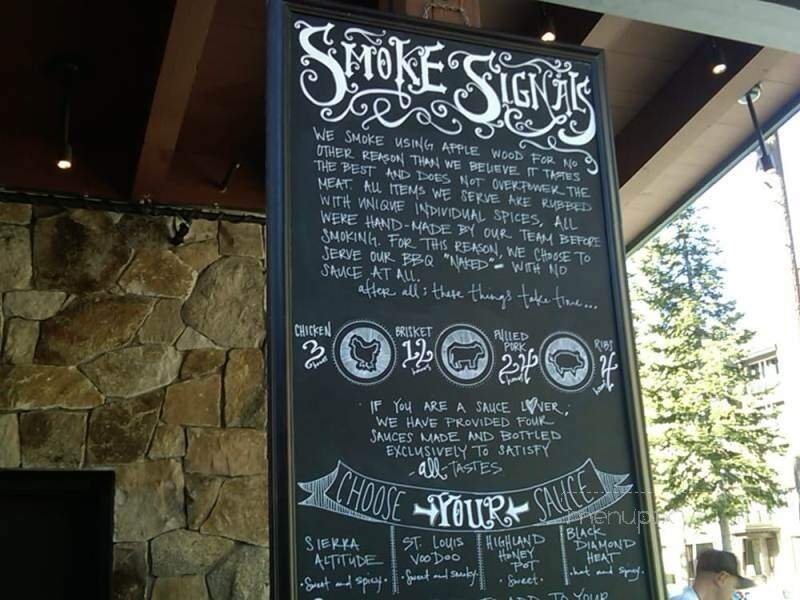 SMOKE SIGNALS
WE SMOKE USING APPLE WOOD FOR NO
OTHER REASON THAN WE BELIEVE IT TASTES
THE BEST AND DOES NOT OVERPOWER THE
MEAT. ALL ITEMS WE SERVE ARE RUBBED
WITH UNIQUE INDIVIDUAL SPICES, ALL
WERE HAND-MADE BY OUR TEAM BEFORE
SMOKING. FOR THIS REASON, WE CHOOSE TO
SERVE OUR BBQ "NAKED" - WITH NO
SAUCE AT ALL.
after all; these things take time...
CHICKEN 3 hours
BRISKET 12 hours
PULLED PORK 24 hours
RIBS 4 hours
IF YOU ARE A SAUCE LOVER,
WE HAVE PROVIDED FOUR
SAUCES MADE AND BOTTLED
EXCLUSIVELY TO SATISFY
all TASTES
CHOOSE YOUR SAUCE
SIERRA
ALTITUDE
· Sweet and spicy ·
ST. LOUIS
VOODOO
· Sweet and smoky ·
HIGHLAND
HONEY
POT
· Sweet ·
BLACK
DIAMOND
HEAT
· hot and spicy ·
ADD TO YOUR
menupix